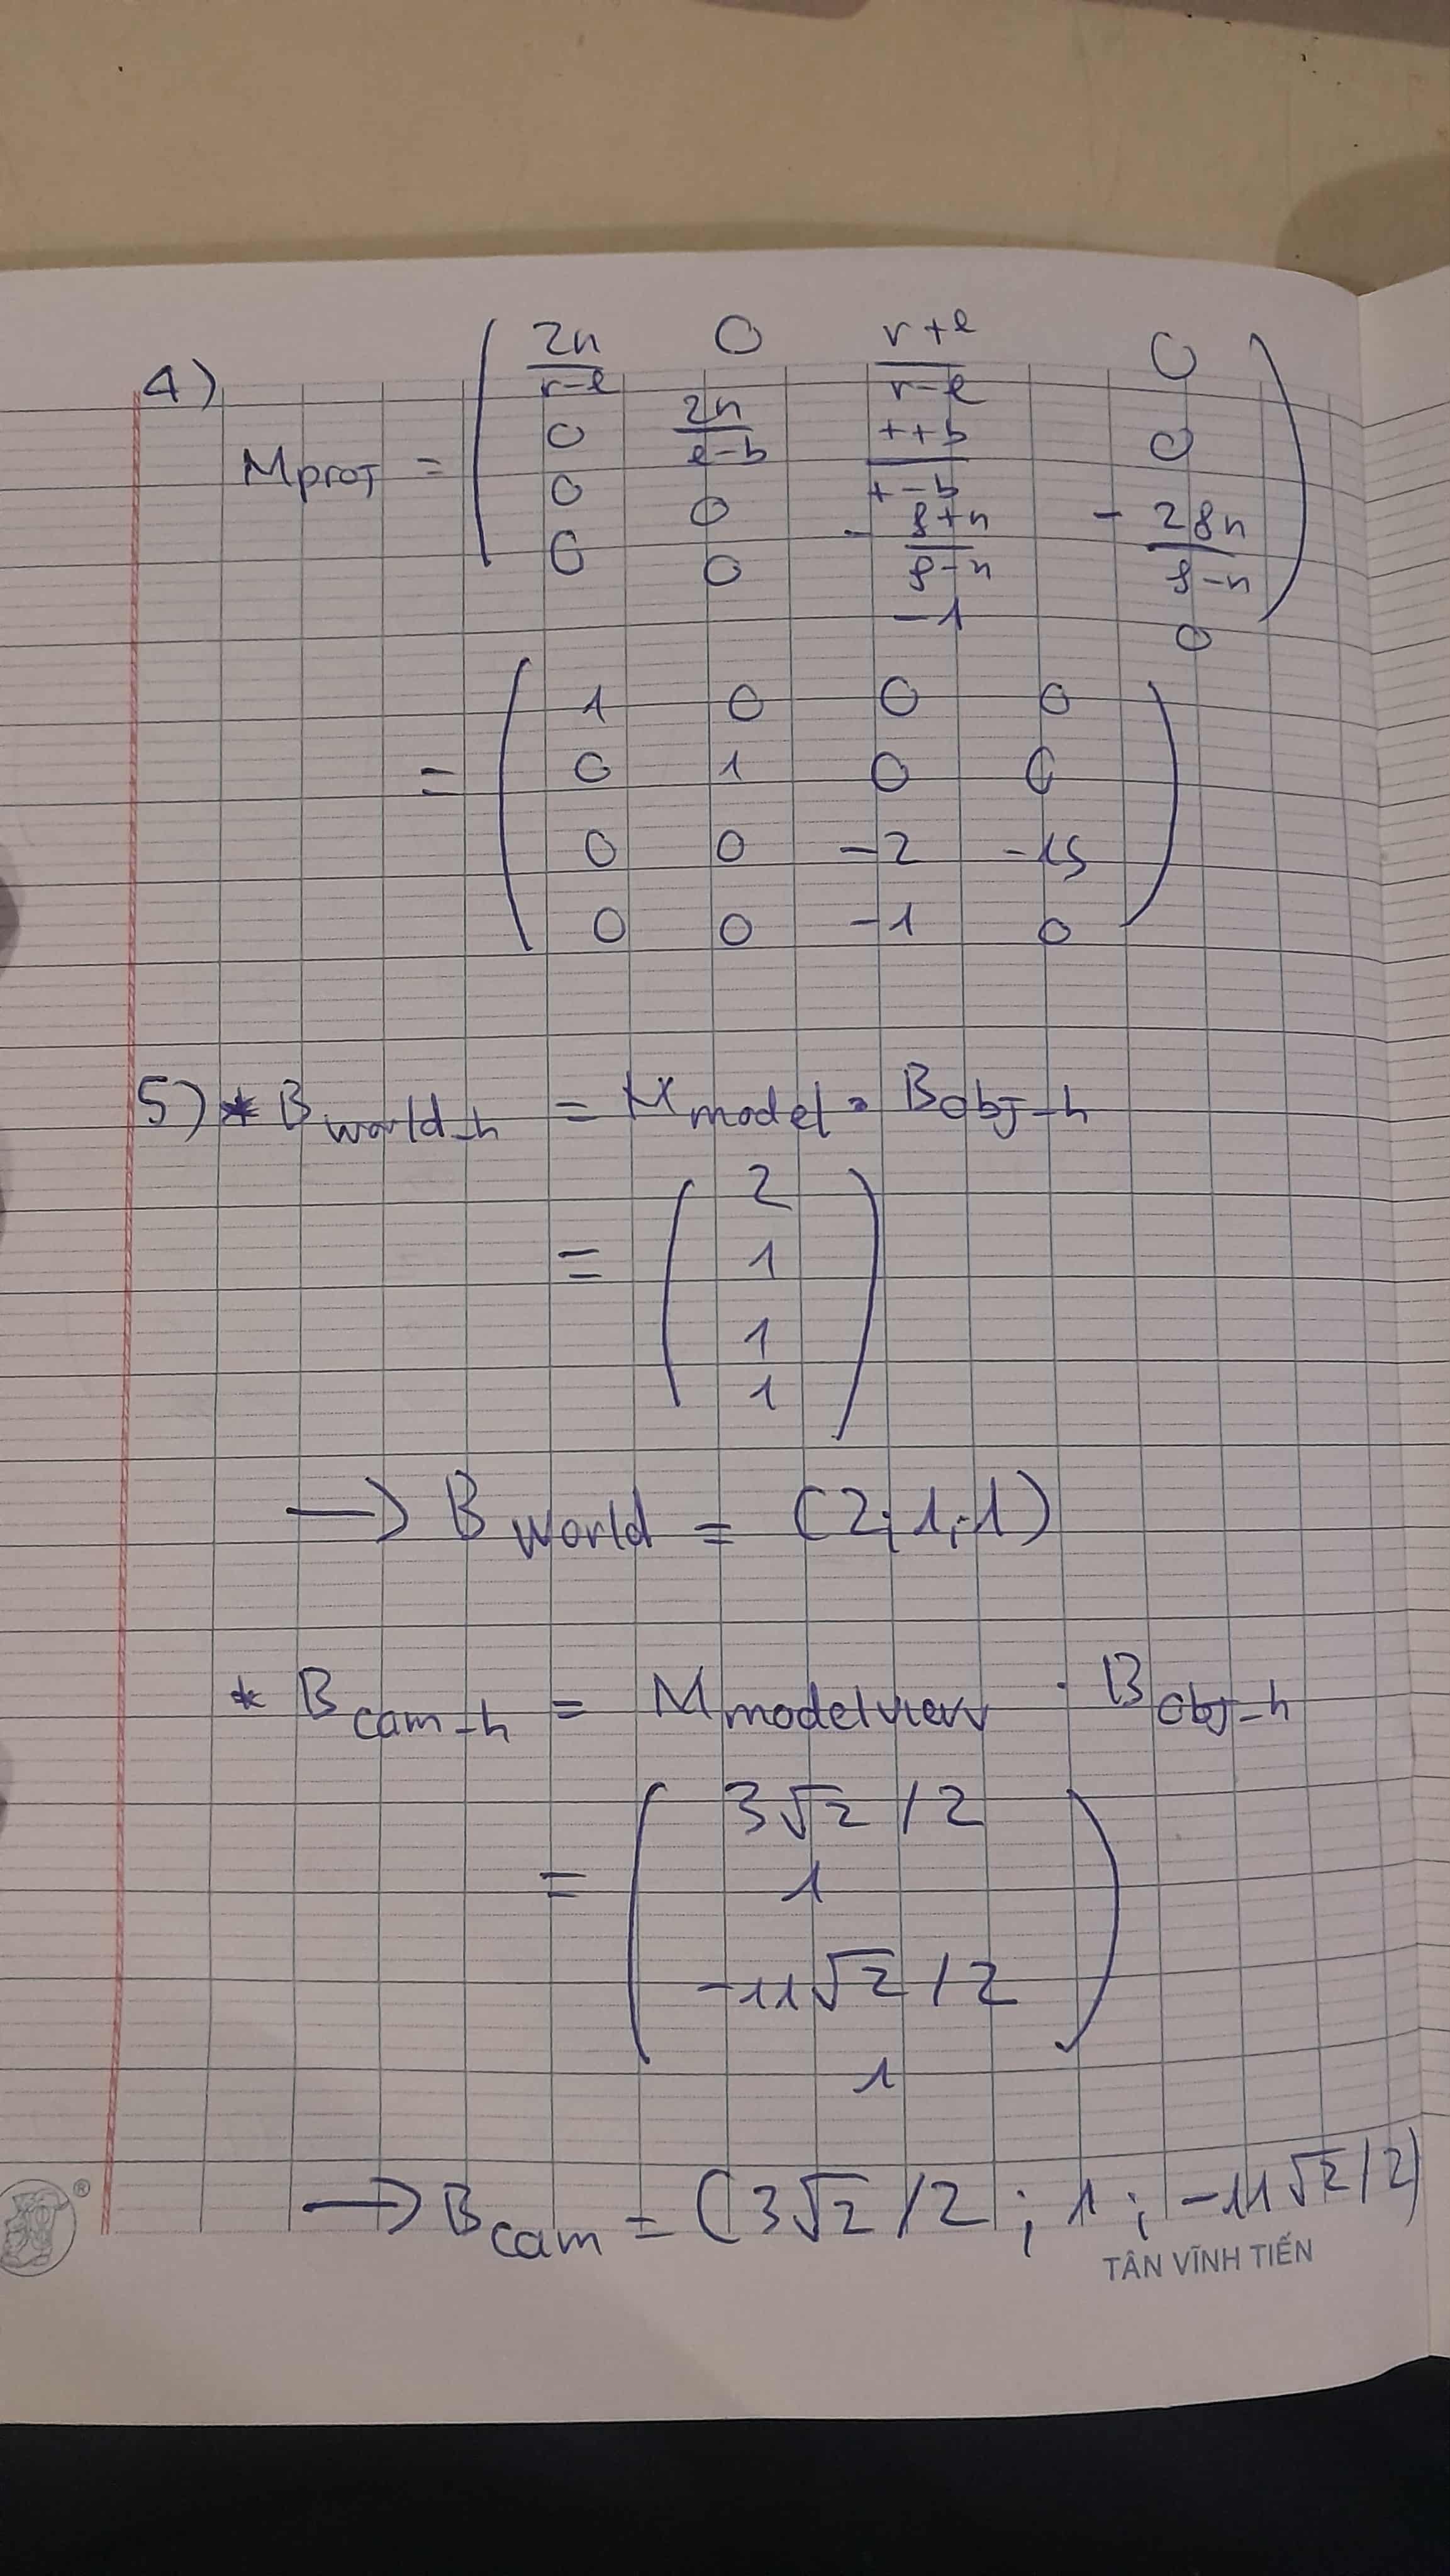 4)
2n/r-l 0 r+l/r-l 0
Mproj = 0 2n/t-b t+b/t-b 0
0 0 - f+n/f-n - 2fn/f-n
0 0 -1 0
1 0 0 0
= 0 1 0 0
0 0 -2 -15
0 0 -1 0
5) * B world_h = M model . B obj_h
2
= 1
1
1
→ B world = (2; 1; 1)
* B cam_h = M modelview . B obj_h
3√2 / 2
= 1
-11√2 / 2
1
→ B cam = (3√2 / 2 ; 1 ; -11√2 / 2)
®
TÂN VĨNH TIẾN